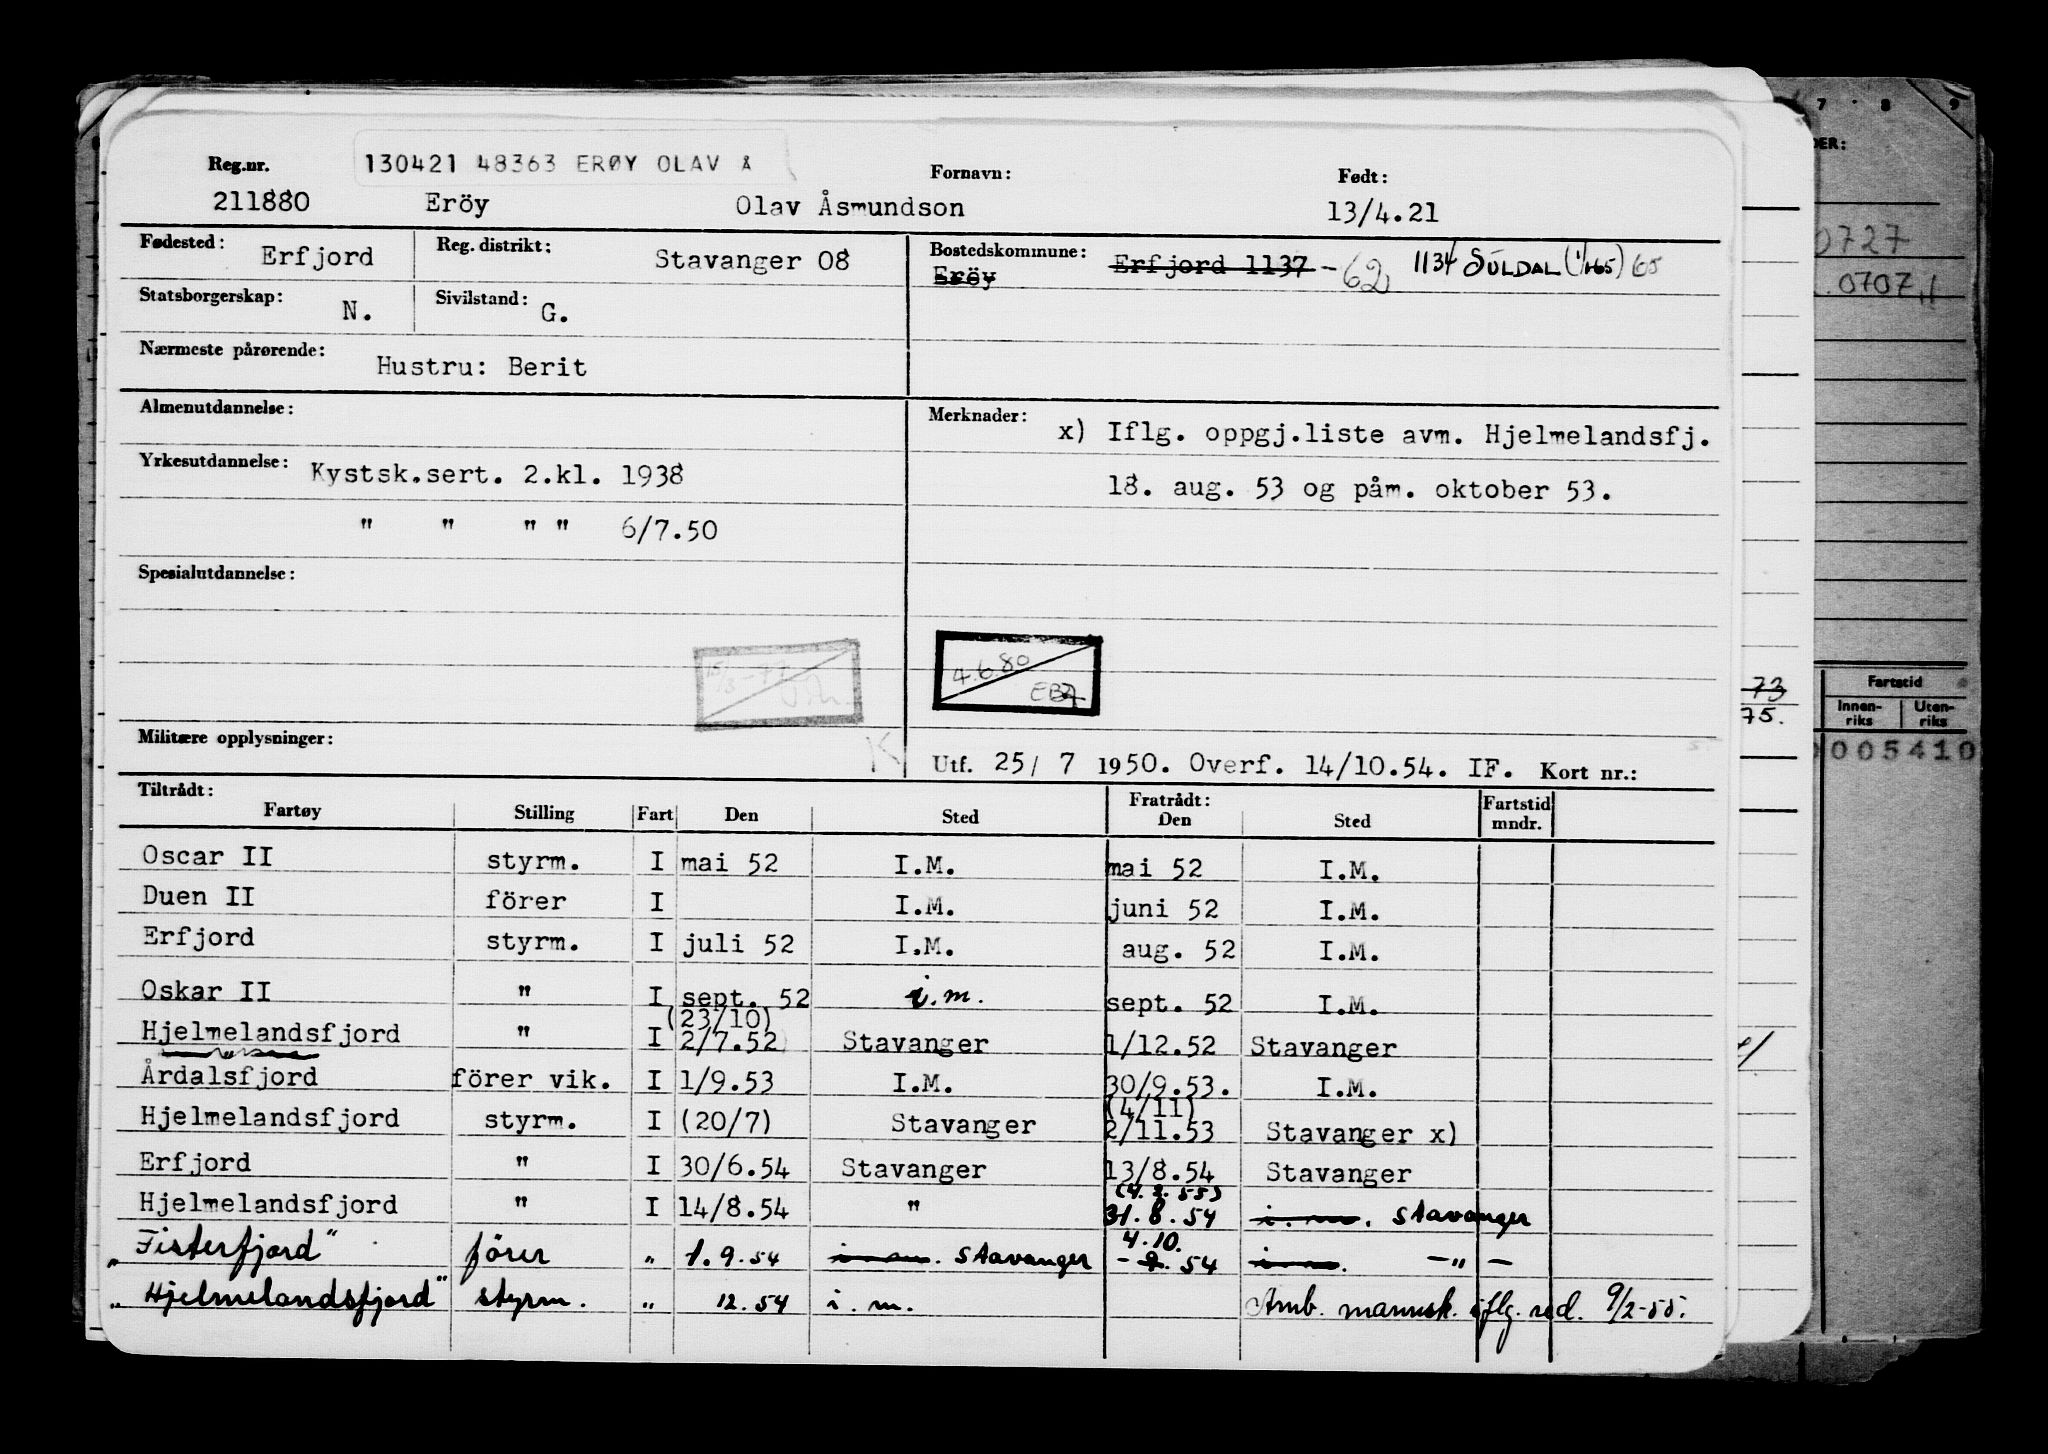 Reg.nr. 130421 48363 ERØY OLAV Å Fornavn: Født:
211880 Eröy Olav Åsmundson 13/4.21
Fødested: Erfjord Reg. distrikt: Stavanger 08 Bostedskommune: Erfjord 1137 - 62 1134 SULDAL (1/1-65) 65
Eröy
Statsborgerskap: N. Sivilstand: G.
Nærmeste pårørende: Hustru: Berit
Almenutdannelse:
Merknader: x) Iflg. oppgj.liste avm. Hjelmelandsfj.
Yrkesutdannelse: Kystsk.sert. 2.kl. 1938
18. aug. 53 og påm. oktober 53.
" " " " 6/7.50
Spesialutdannelse:
4.6.80
Militære opplysninger:
K
Utf. 25/ 7 1950. Overf. 14/10.54. IF. Kort nr.:
Tiltrådt: Fratrådt:
Fartøy Stilling Fart Den Sted Den Sted Fartstid mndr.
Oscar II styrm. I mai 52 I.M. mai 52 I.M.
Duen II förer I I.M. juni 52 I.M.
Erfjord styrm. I juli 52 I.M. aug. 52 I.M.
Oskar II " I sept. 52 i.m. sept. 52 I.M.
(23/10)
Hjelmelandsfjord " I 2/7.52 Stavanger 1/12.52 Stavanger
Årdalsfjord förer vik. I 1/9.53 I.M. 30/9.53. I.M.
(4/11)
Hjelmelandsfjord styrm. I (20/7) Stavanger 2/11.53 Stavanger x)
Erfjord " I 30/6.54 Stavanger 13/8.54 Stavanger
(4.2.55)
Hjelmelandsfjord " I 14/8.54 " 31.8.54 i.m. Stavanger
4.10.
"Fisterfjord" förer " 1.9.54 i.m. Stavanger - 9. 54 i.m. -"-
"Hjelmelandsfjord" styrm. " 12.54 i.m. Amb. mannsk. iflg. red. 9/2-55.
7 8 9
DER:
0727
0707
73
75.
Fartstid
Innen-riks Uten-riks
005410